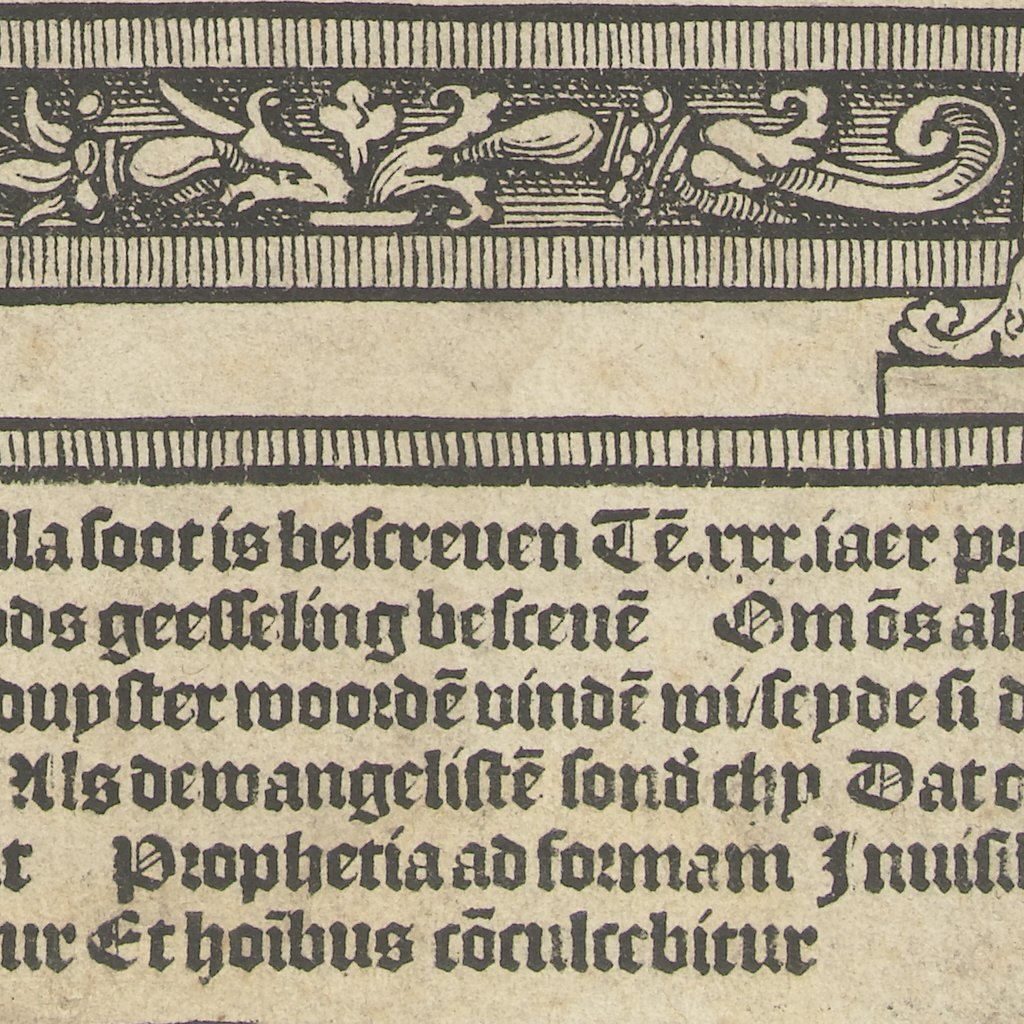 lla soot is bescreuen Tē.xxx.iaer pr
ods geesseling besceuē Om ōs all
duyster woordē vindē wi/scyde si d
Als dewangelistē sond' chy Dat
t Prophetia ad formam Inuisi
ur Et hoībus cōculcebitur